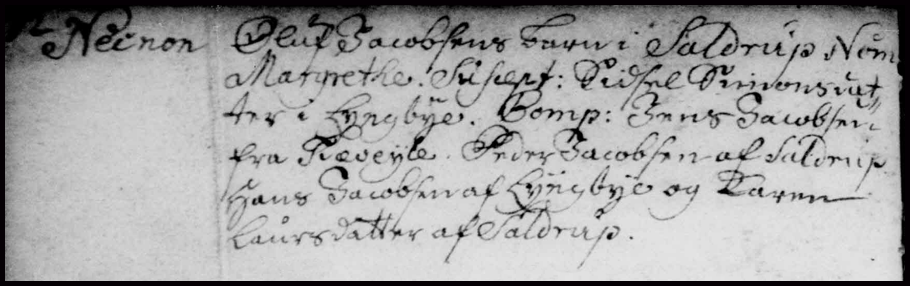 Necnon Oluf Jacobsens barn i Saldrup Nom
Margrethe. Suscept: Kidsel Simonsdat
ter i Lyngbÿe. Comp: Jens Jacobsen
fra Ræveyle. Peder Jacobsen af Saldrup
Hans Jacobsen af Lÿngbÿe og Karen
Laursdatter af Saldrup.